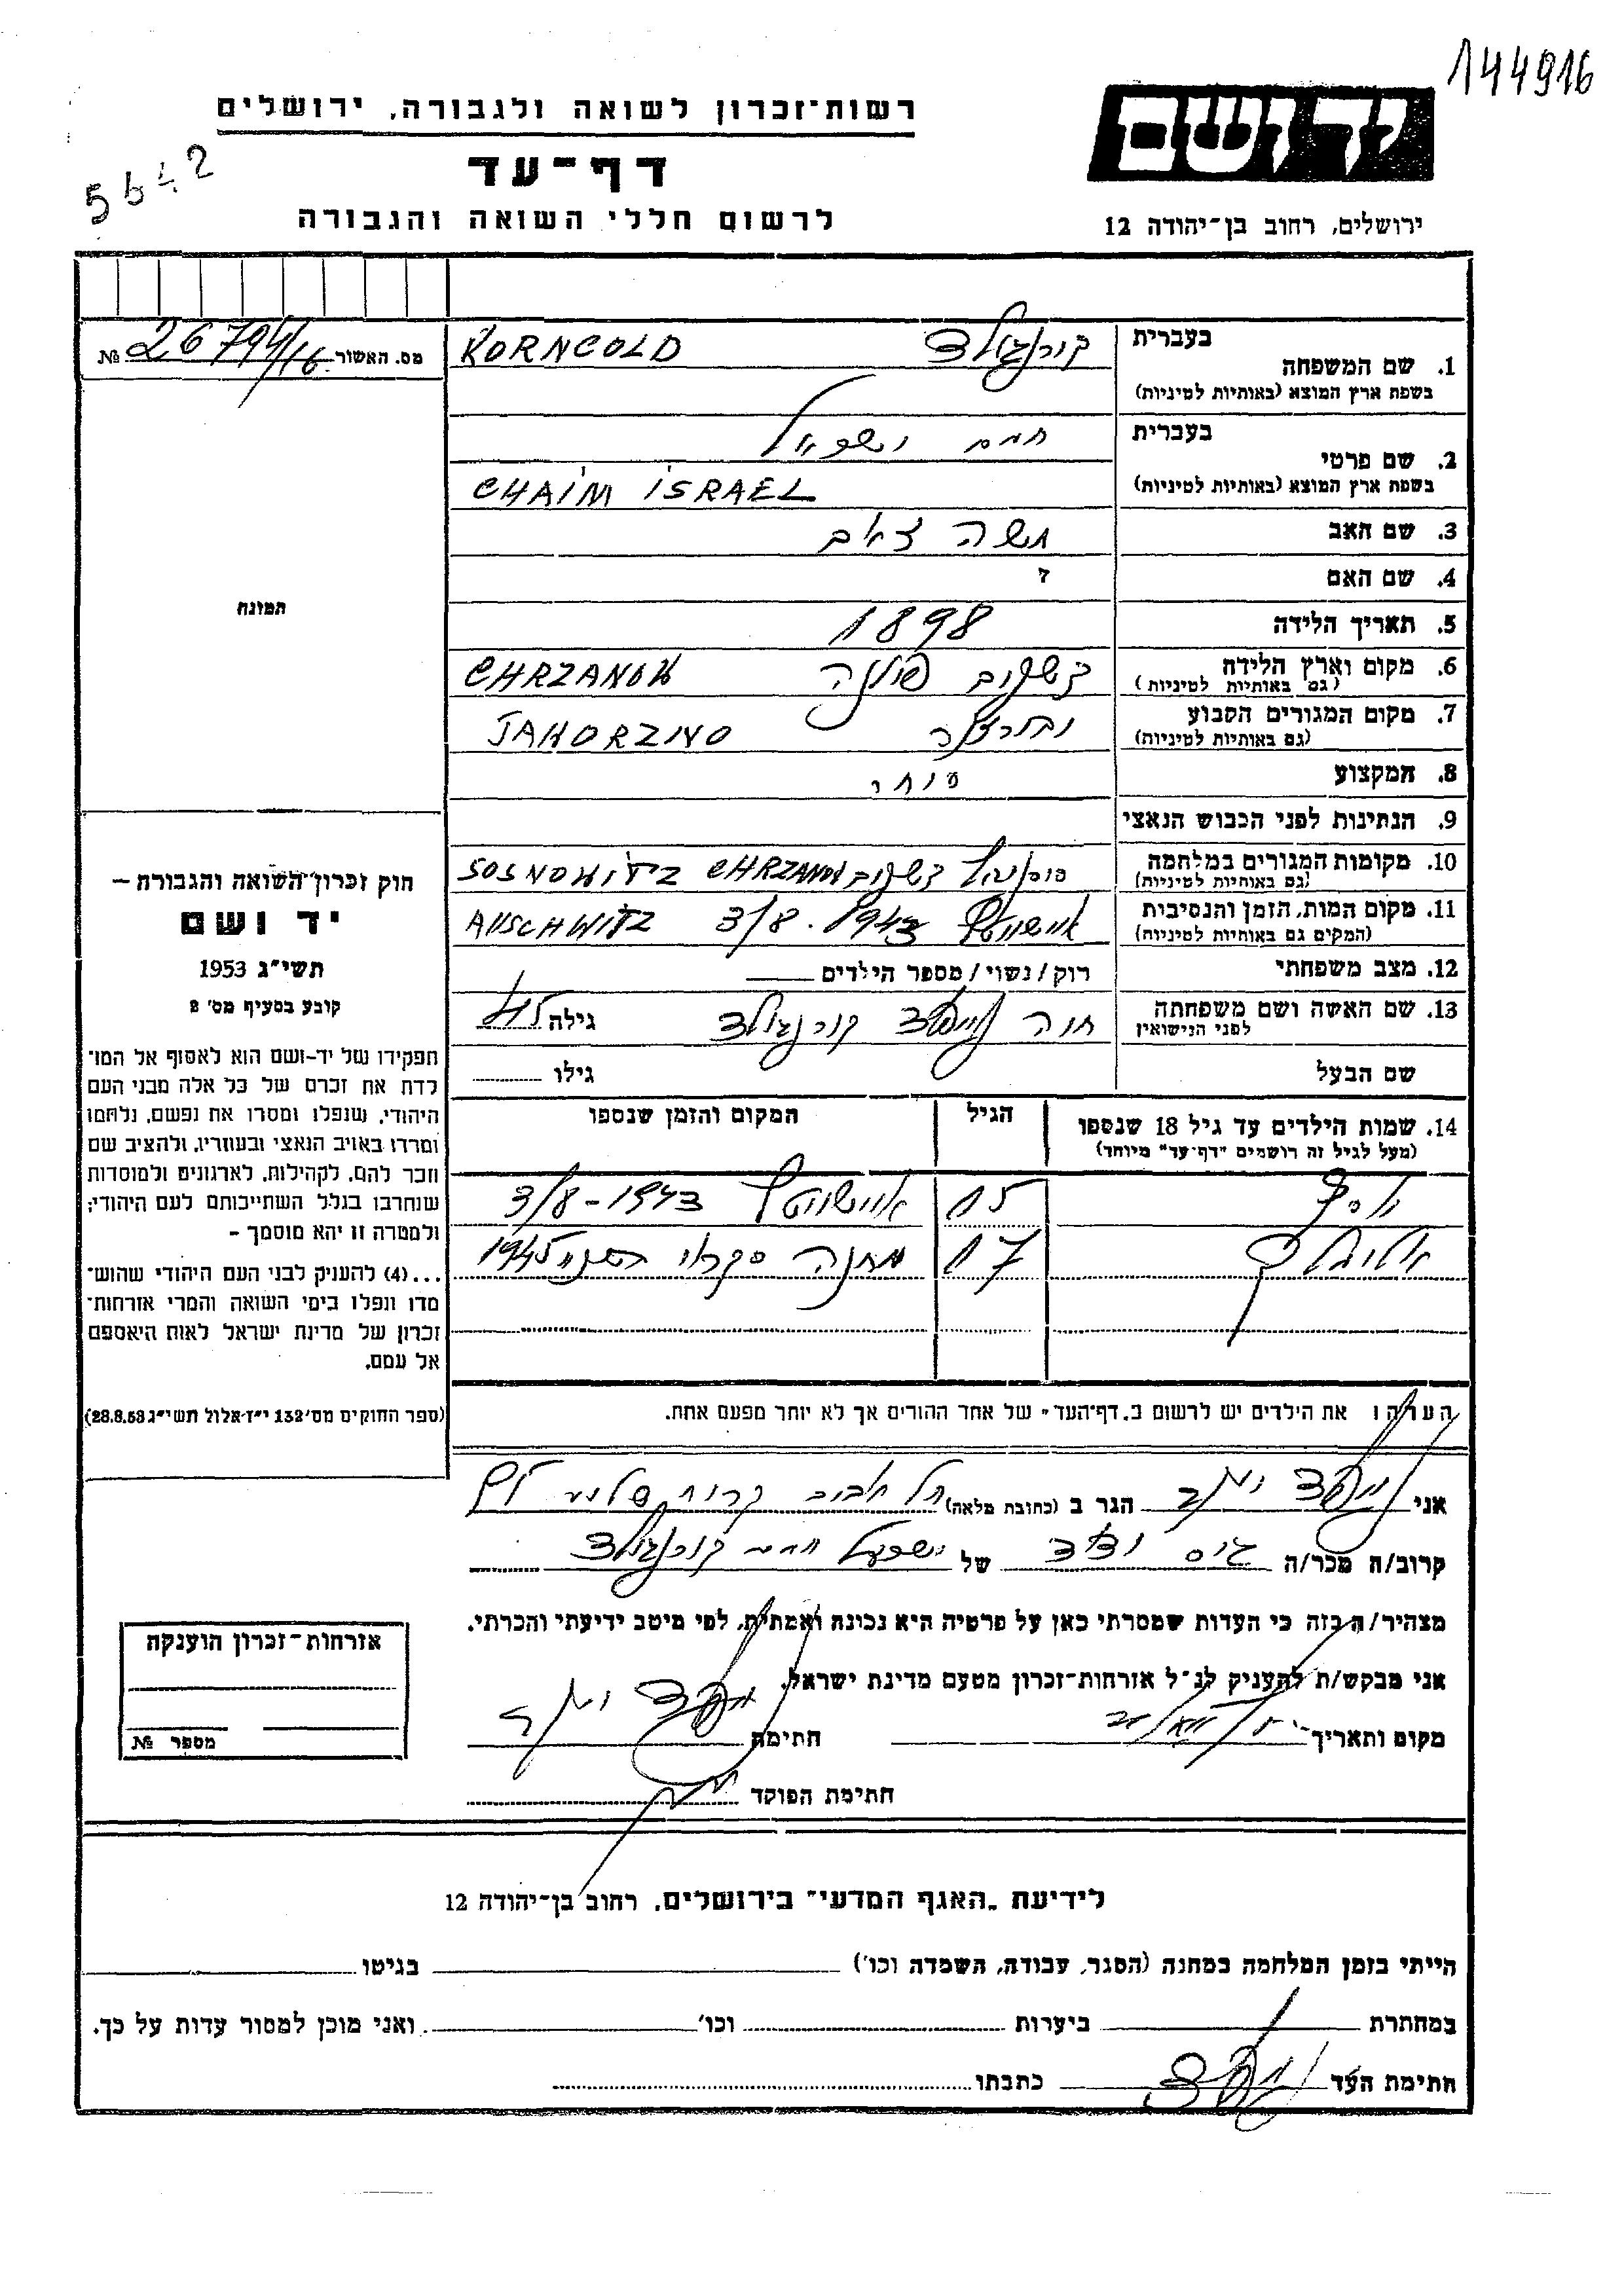 144916
רשות־זכרון לשואה ולגבורה, ירושלים
יד ושם
דף־עד
5642
לרשום חללי השואה והגבורה
ירושלים, רחוב בן־יהודה 12
מס. האשור № 26794/16
1. שם המשפחה
בעברית קורנגולד KORNGOLD
בשפת ארץ המוצא (באותיות לטיניות)
2. שם פרטי
בעברית חיים ישראל
בשפת ארץ המוצא (באותיות לטיניות) CHAIM ISRAEL
3. שם האב משה
4. שם האם ?
5. תאריך הלידה 1898
6. מקום וארץ הלידה פולניה CHRZANOW
(גם באותיות לטיניות)
7. מקום המגורים הקבוע JAWORZNO
(גם באותיות לטיניות)
8. המקצוע סוחר
9. הנתינות לפני הכבוש הנאצי
10. מקומות המגורים במלחמה CHRZANOW SOSNOWITZ
(גם באותיות לטיניות)
11. מקום המות, הזמן והנסיבות 3/8. 1943 AUSCHWITZ
(המקום גם באותיות לטיניות)
12. מצב משפחתי רוק/נשוי/מספר הילדים
13. שם האשה ושם משפחתה חוה קורנגולד גילה 45
לפני הנישואין
שם הבעל גילו
14. שמות הילדים עד גיל 18 שנספו הגיל המקום והזמן שנספו
(מעל לגיל זה רושמים "דף־עד" מיוחד)
15 אוישוויץ 3/8-1943
17 מחנה 1945
הערה: את הילדים יש לרשום ב„דף־העד" של אחד ההורים אך לא יותר מפעם אחת.
תמונה
חוק זכרון השואה והגבורה –
יד ושם
תשי״ג 1953
קובע בסעיף מס׳ 2
תפקידו של יד־ושם הוא לאסוף אל המו־
לדת את זכרם של כל אלה מבני העם
היהודי, שנפלו ומסרו את נפשם, נלחמו
ומרדו באויב הנאצי ובעוזריו, ולהציב שם
וזכר להם, לקהילות, לארגונים ולמוסדות
שנחרבו בגלל השתייכותם לעם היהודי;
ולמטרה זו יהא מוסמך –
...(4) להעניק לבני העם היהודי שהוש־
מדו ונפלו בימי השואה והמרי אזרחות־
זכרון של מדינת ישראל לאות היאספם
אל עמם.
(ספר החוקים מס׳ 132 י״ז אלול תשי״ג 28.8.53)
אני הגר ב (כתובת מלאה) תל אביב
קרוב/ה מכר/ה גיס של ישראל חיים קורנגולד
מצהיר/ה בזה כי העדות שמסרתי כאן על פרטיה היא נכונה ואמתית, לפי מיטב ידיעתי והכרתי.
אני מבקש/ת להעניק לנ״ל אזרחות־זכרון מטעם מדינת ישראל.
מקום ותאריך חתימה
חתימת הפוקד
אזרחות־זכרון הוענקה
מספר №
לידיעת „האגף המדעי" בירושלים, רחוב בן־יהודה 12
הייתי בזמן המלחמה במחנה (הסגר, עבודה, השמדה וכו׳) בגיטו
במחתרת ביערות וכו׳ ואני מוכן למסור עדות על כך.
חתימת העד כתבתו